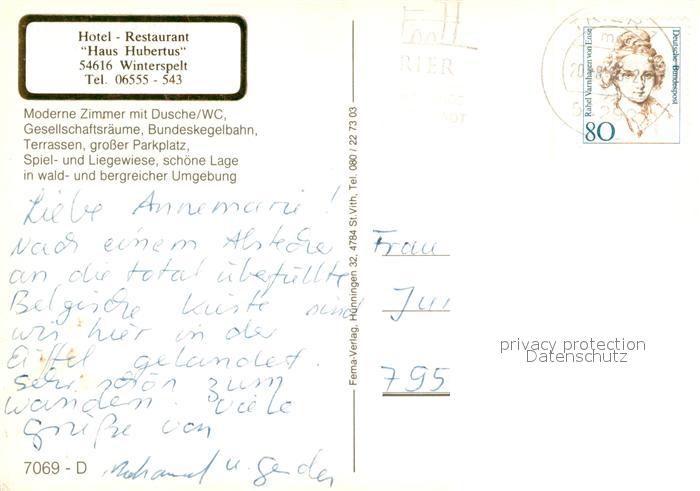 Hotel - Restaurant
"Haus Hubertus"
54616 Winterspelt
Tel. 06555 - 543
Moderne Zimmer mit Dusche/WC,
Gesellschaftsräume, Bundeskegelbahn,
Terrassen, großer Parkplatz,
Spiel- und Liegewiese, schöne Lage
in wald- und bergreicher Umgebung
Liebe Annemarie!
Nach einem Abstecher
an die total überfüllte
Belgische Küste sind
wir hier in der
Eiffel gelandet.
Sehr schön zum
wandern. Viele
Grüße von
u.
7069 - D
Fema-Verlag, Hünningen 32, 4784 St. Vith, Tel. 080 / 22 73 03
TRIER
Rahel Varnhagen von Ense
Deutsche Bundespost
80
Frau
Jur
795
privacy protection
Datenschutz